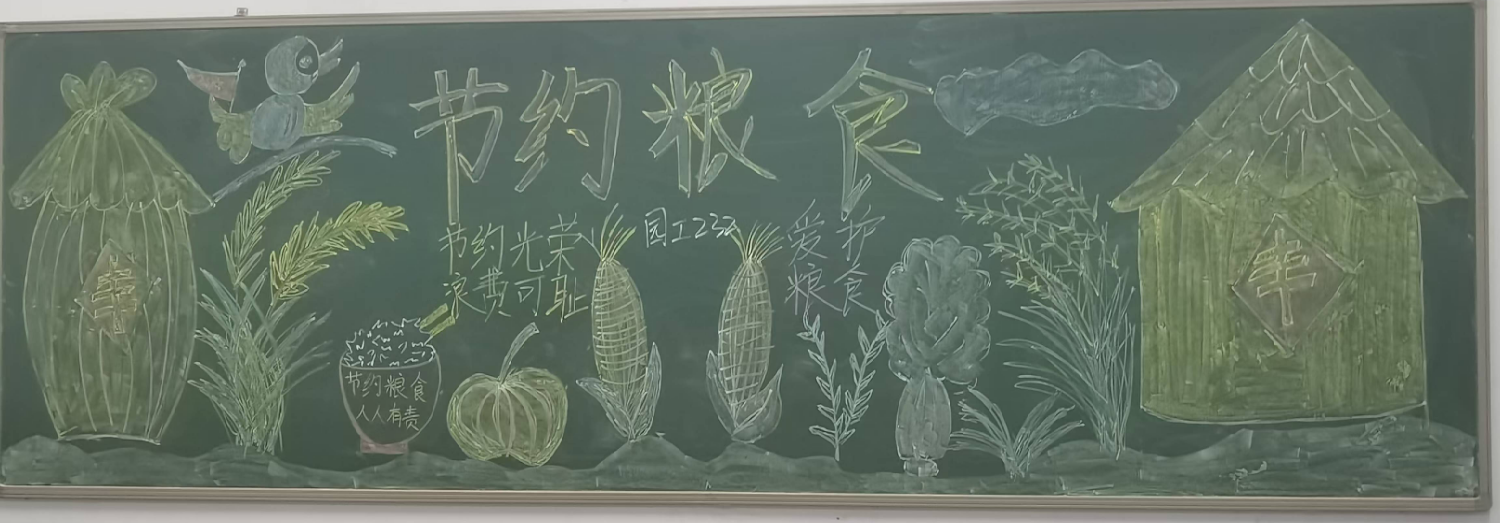 节约粮食
节约光荣
浪费可耻
园工232
爱护
粮食
丰
节约粮食
人人有责
丰